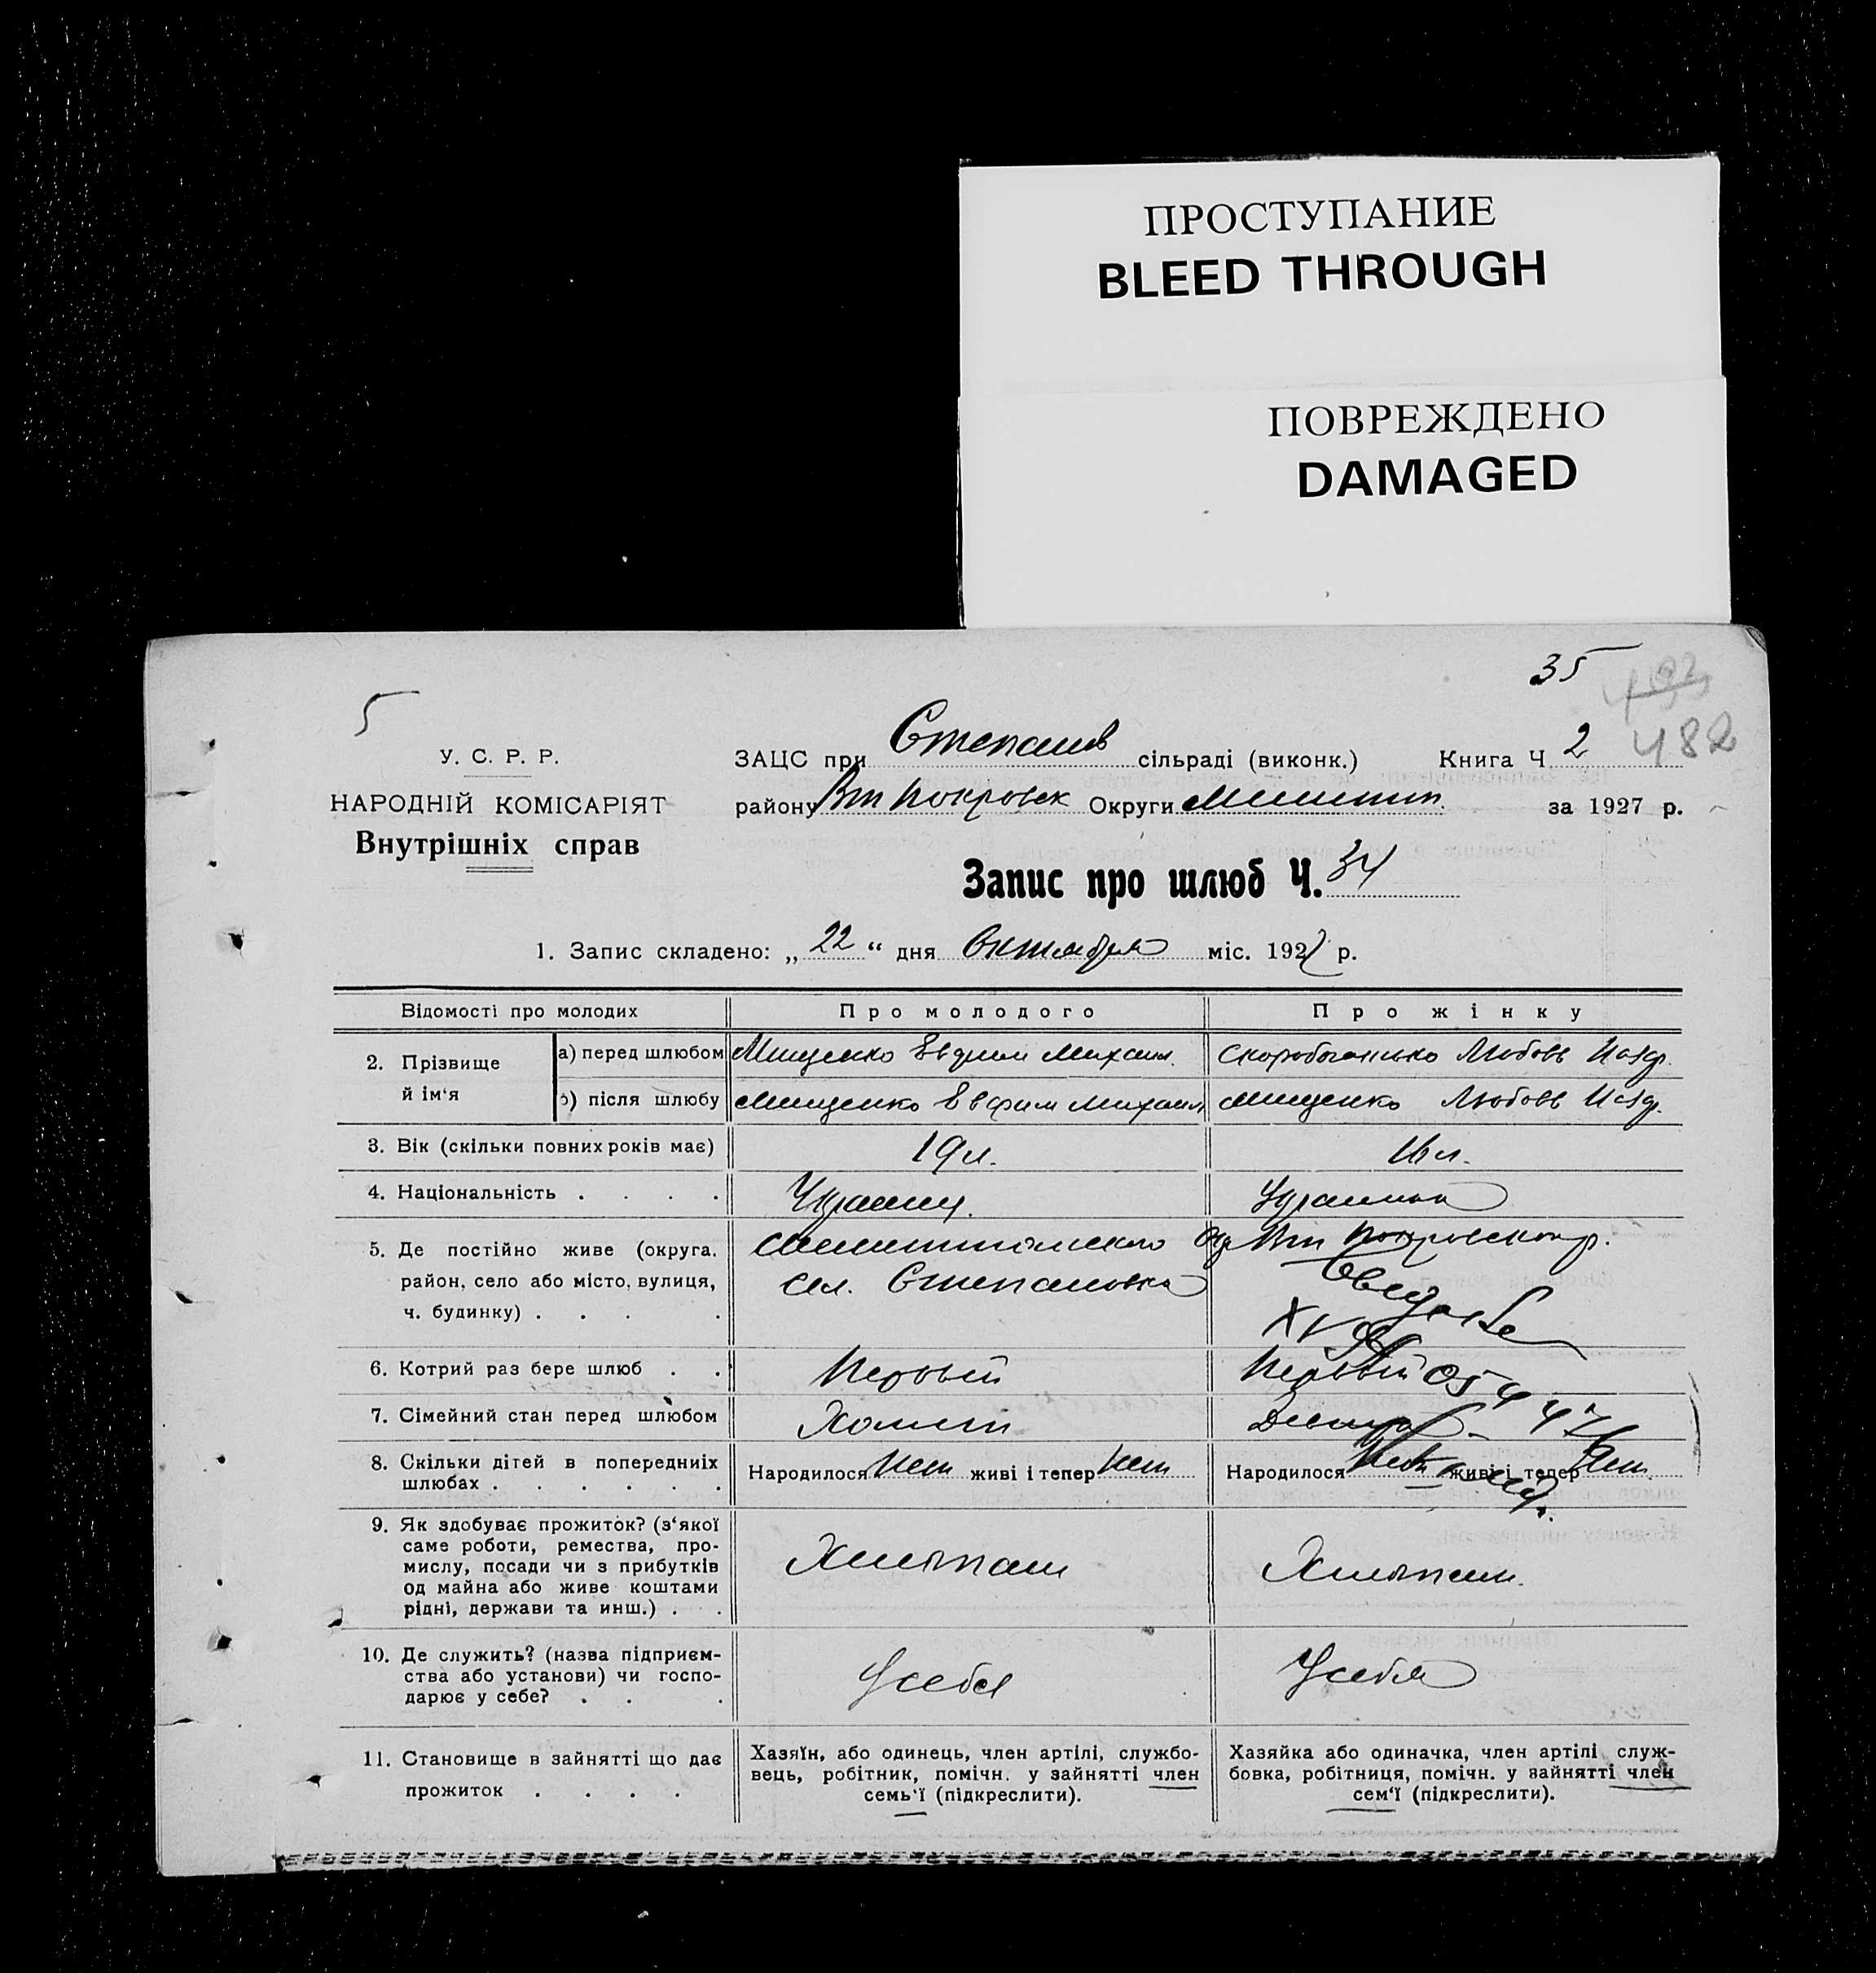 ПРОСТУПАНИЕ
BLEED THROUGH
ПОВРЕЖДЕНО
DAMAGED
35
5
482
У. С. Р. Р.
НАРОДНІЙ КОМІСАРІЯТ
Внутрішніх справ
ЗАЦС при Степанов сільраді (виконк.) Книга Ч. 2
району Вт Покровск Округи за 1927 р.
Запис про шлюб Ч. 34
1. Запис складено: „ 22 “ дня Октября міс. 1927 р.
Відомості про молодих Про молодого Про жінку
2. Прізвище й ім‘я
а) перед шлюбом Мищенко Евфим Михаил. Скоробогатько Любовь Назар.
б) після шлюбу Мищенко Евфим Михаил Мищенко Любовь Назар.
3. Вік (скільки повних років має) 19 л. 18 л.
4. Національність . . . . Украинц. Украинка
5. Де постійно живе (округа. район, село або місто, вулиця, ч. будинку) . . . .
Вт Покровског р.
сел. Степановка
6. Котрий раз бере шлюб . . Первый Первый
7. Сімейний стан перед шлюбом Холост
8. Скільки дітей в попередниіх шлюбах . . . . . .
Народилося Нет живі і тепер Нет Народилося Нет живі і тепер Нет
9. Як здобуває прожиток? (з‘якої
саме роботи, ремества, про-
мислу, посади чи з прибутків
од майна або живе коштами
рідні, держави та инш.) . .
Хлебопаш Хлебопаш.
10. Де служить? (назва підприєм-
ства або установи) чи госпо-
дарює у себе? . . .
У себя У себя
11. Становище в зайнятті що дає
прожиток . . . .
Хазяїн, або одинець, член артілі, службо-
вець, робітник, помічн. у зайнятті член
семь‘ї (підкреслити).
Хазяйка або одиначка, член артілі служ-
бовка, робітниця, помічн. у зайнятті член
сем‘ї (підкреслити).